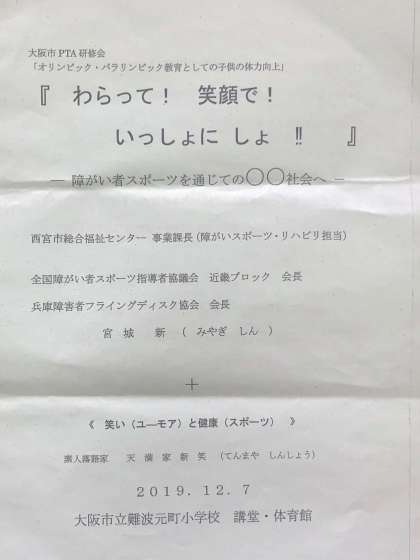 大阪市 PTA 研修会
「オリンピック・パラリンピック教育としての子供の体力向上」
『　わらって！　笑顔で！
いっしょに しょ　!!　　』
― 障がい者スポーツを通じての〇〇社会へ ―
西宮市総合福祉センター 事業課長（障がいスポーツ・リハビリ担当）
全国障がい者スポーツ指導者協議会　近畿ブロック　会長
兵庫障害者フライングディスク協会　会長
宮 城　　新　（　みやぎ　しん　）
＋
《　笑い（ユーモア）と健康（スポーツ）　》
素人落語家　　天 満 家 新 笑　（てんまや　しんしょう）
２０１９．１２．７
大阪市立難波元町小学校　講堂・体育館